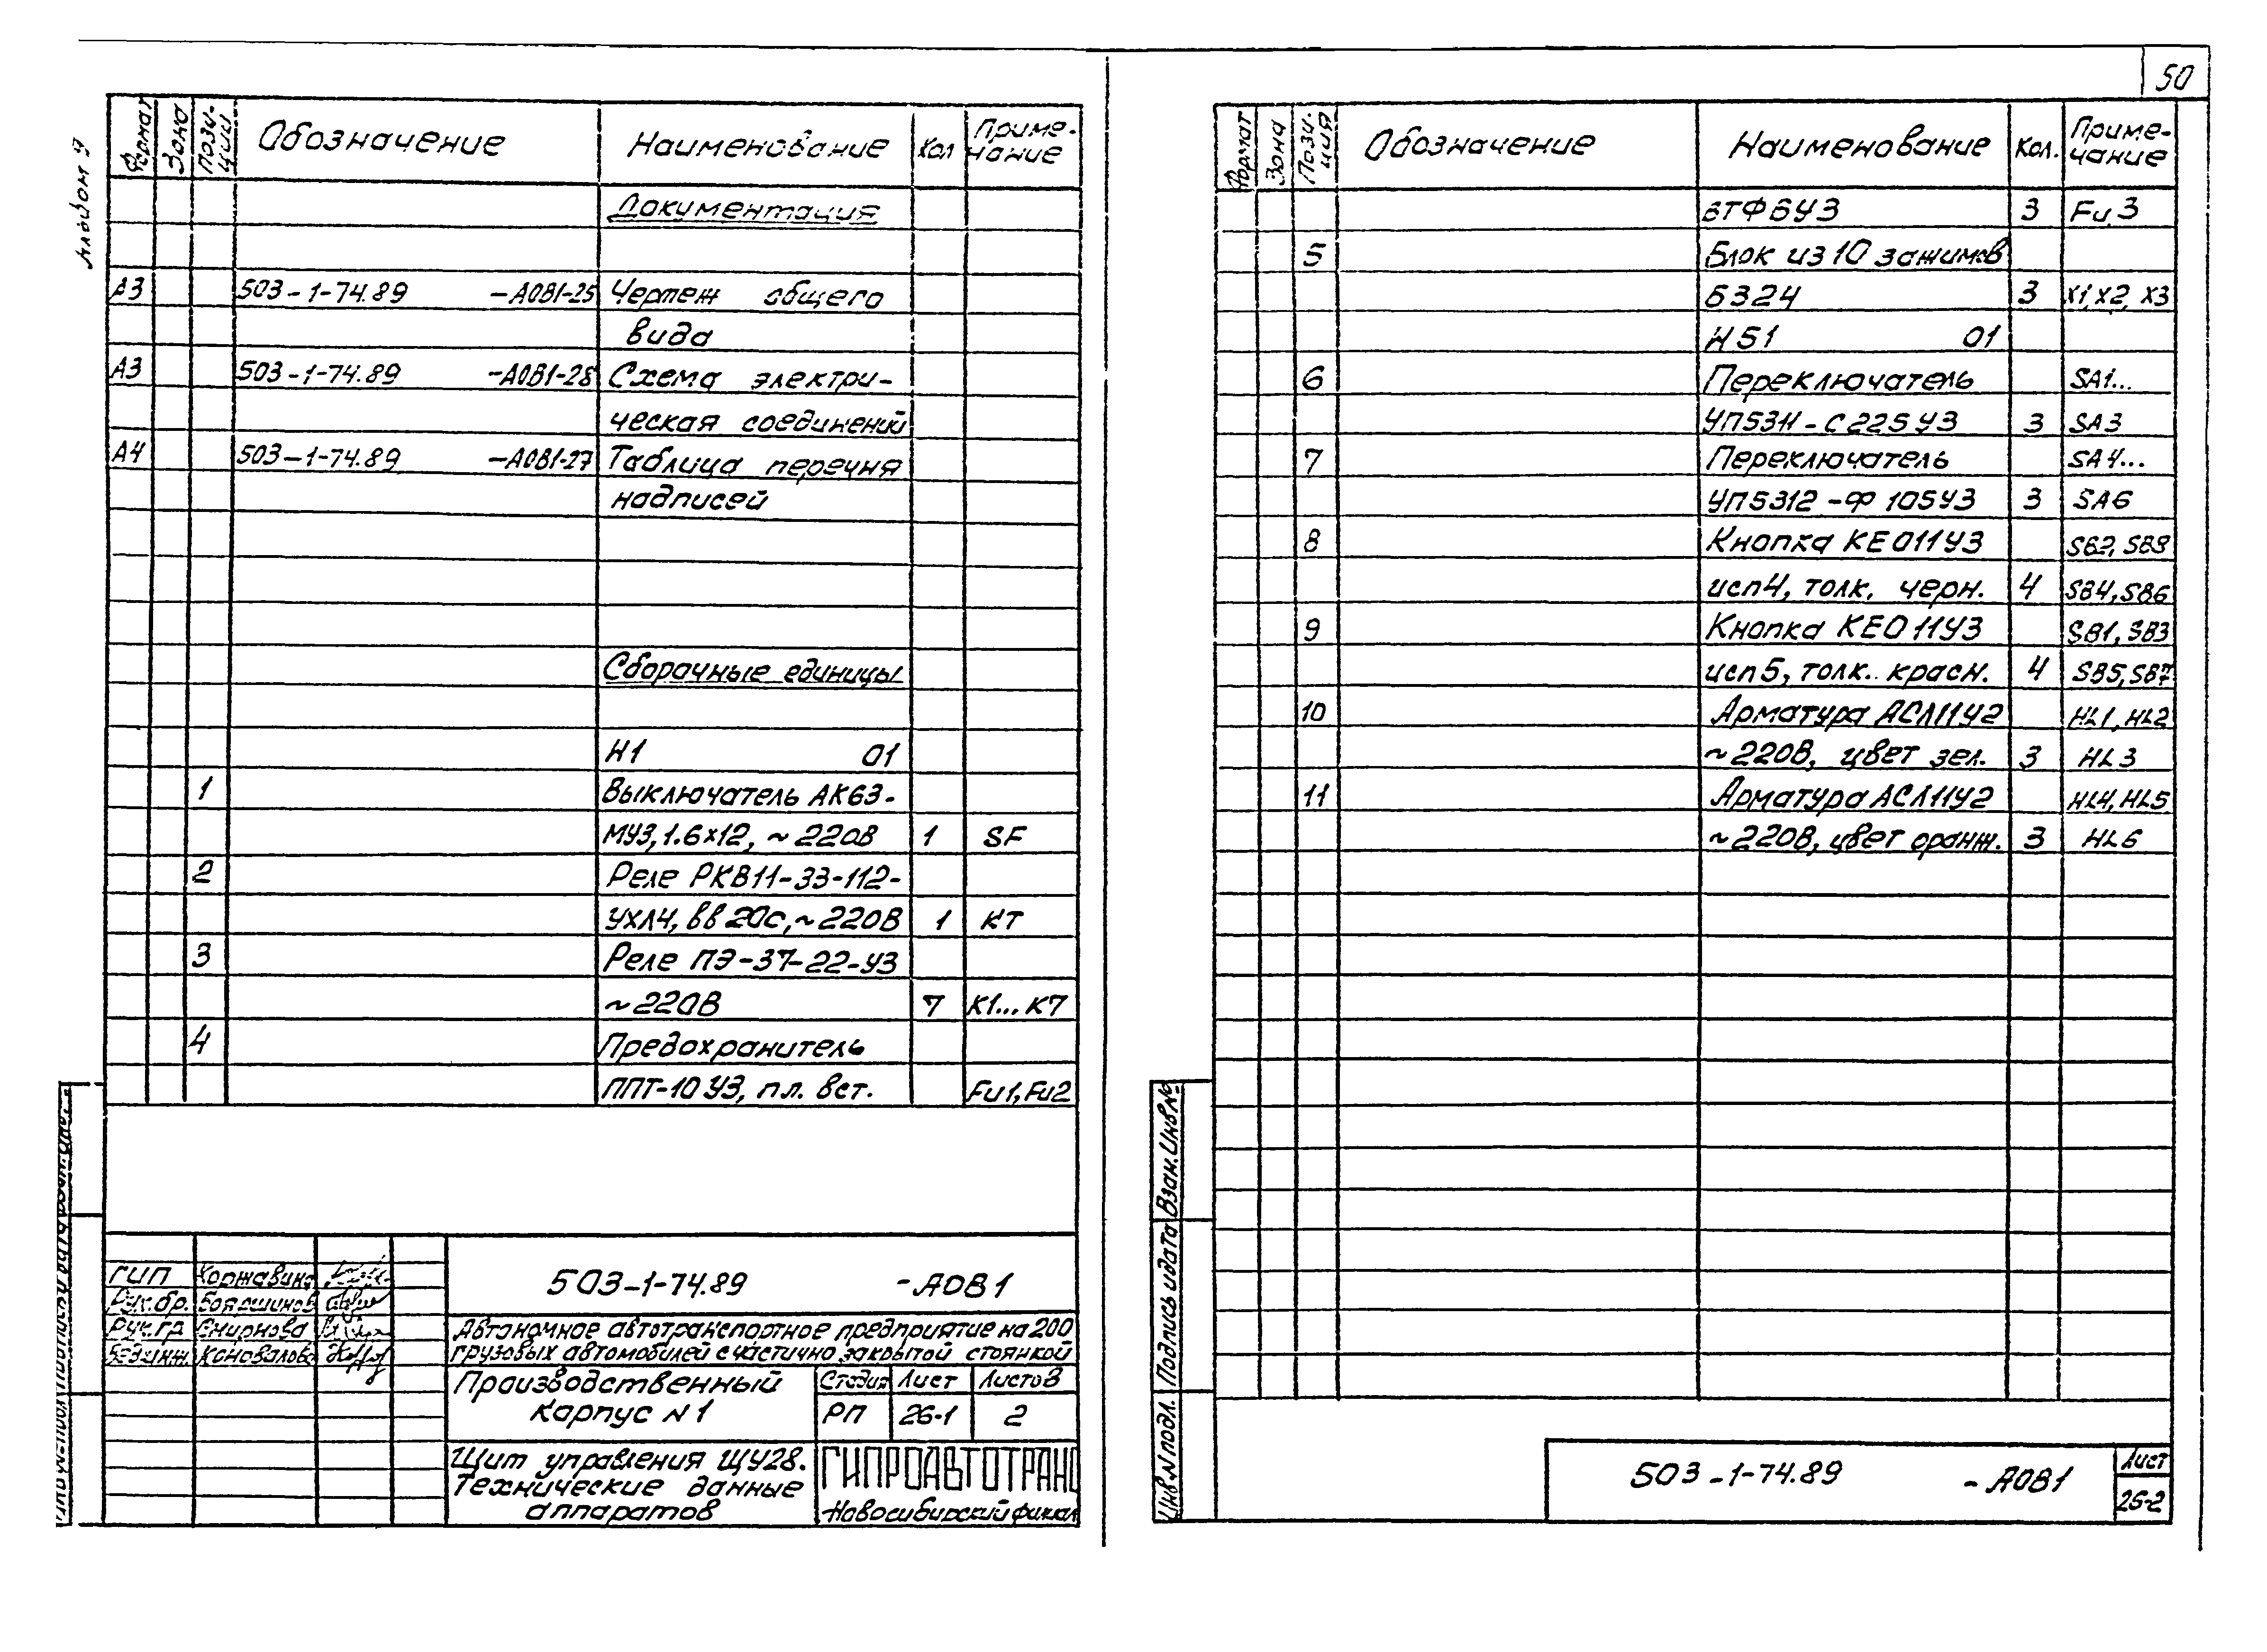 50
Альбом 9
Формат Зона Пози-ции Обозначение Наименование Кол Приме-чание
Документация
А3 503-1-74.89 -АОВ1-25 Чертеж общего
вида
А3 503-1-74.89 -АОВ1-28 Схема электри-
ческая соединений
А4 503-1-74.89 -АОВ1-27 Таблица перечня
надписей
Сборочные единицы
И1 01
1 Выключатель АК63-
МУ3, 1.6х12, ~220В 1 SF
2 Реле РКВ11-33-112-
УХЛ4, вв 20с, ~220В 1 КТ
3 Реле ПЭ-37-22-У3
~220В 7 К1...К7
4 Предохранитель
ППТ-10У3, пл. вст. Fu1, Fu2
503-1-74.89 -АОВ1
ГИП Коржавина
Рук.бр. Бояршинов
Рук.гр Смирнова
Вед.инж. Коновалова
Автономное автотранспортное предприятие на 200
грузовых автомобилей с частично закрытой стоянкой
Производственный
корпус N1
Стадия Лист Листов
РП 26-1 2
Щит управления ЩУ28.
Технические данные
аппаратов
ГИПРОАВТОТРАНС
Новосибирский филиал
Формат Зона Пози-ция Обозначение Наименование Кол. Приме-чание
ВТФ6У3 3 Fu3
5 Блок из 10 зажимов
Б324 3 X1, X2, X3
И51 01
6 Переключатель SA1...
УП5311-С225У3 3 SA3
7 Переключатель SA4...
УП5312-Ф105У3 3 SA6
8 Кнопка КЕ011У3 SB2, SB8
исп4, толк. черн. 4 SB4, SB6
9 Кнопка КЕ011У3 SB1, SB3
исп5, толк. красн. 4 SB5, SB7
10 Арматура АСЛ11У2 HL1, HL2
~220В, цвет зел. 3 HL3
11 Арматура АСЛ11У2 HL4, HL5
~220В, цвет оранж. 3 HL6
Взам. Инв №
Подпись и дата
Инв. N подл.
503-1-74.89 -АОВ1
Лист
26-2